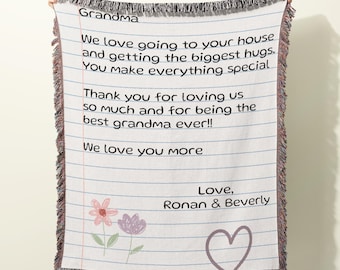 Grandma
We love going to your house
and getting the biggest hugs.
You make everything special
Thank you for loving us
so much and for being the
best grandma ever!!
We love you more
Love,
Ronan & Beverly